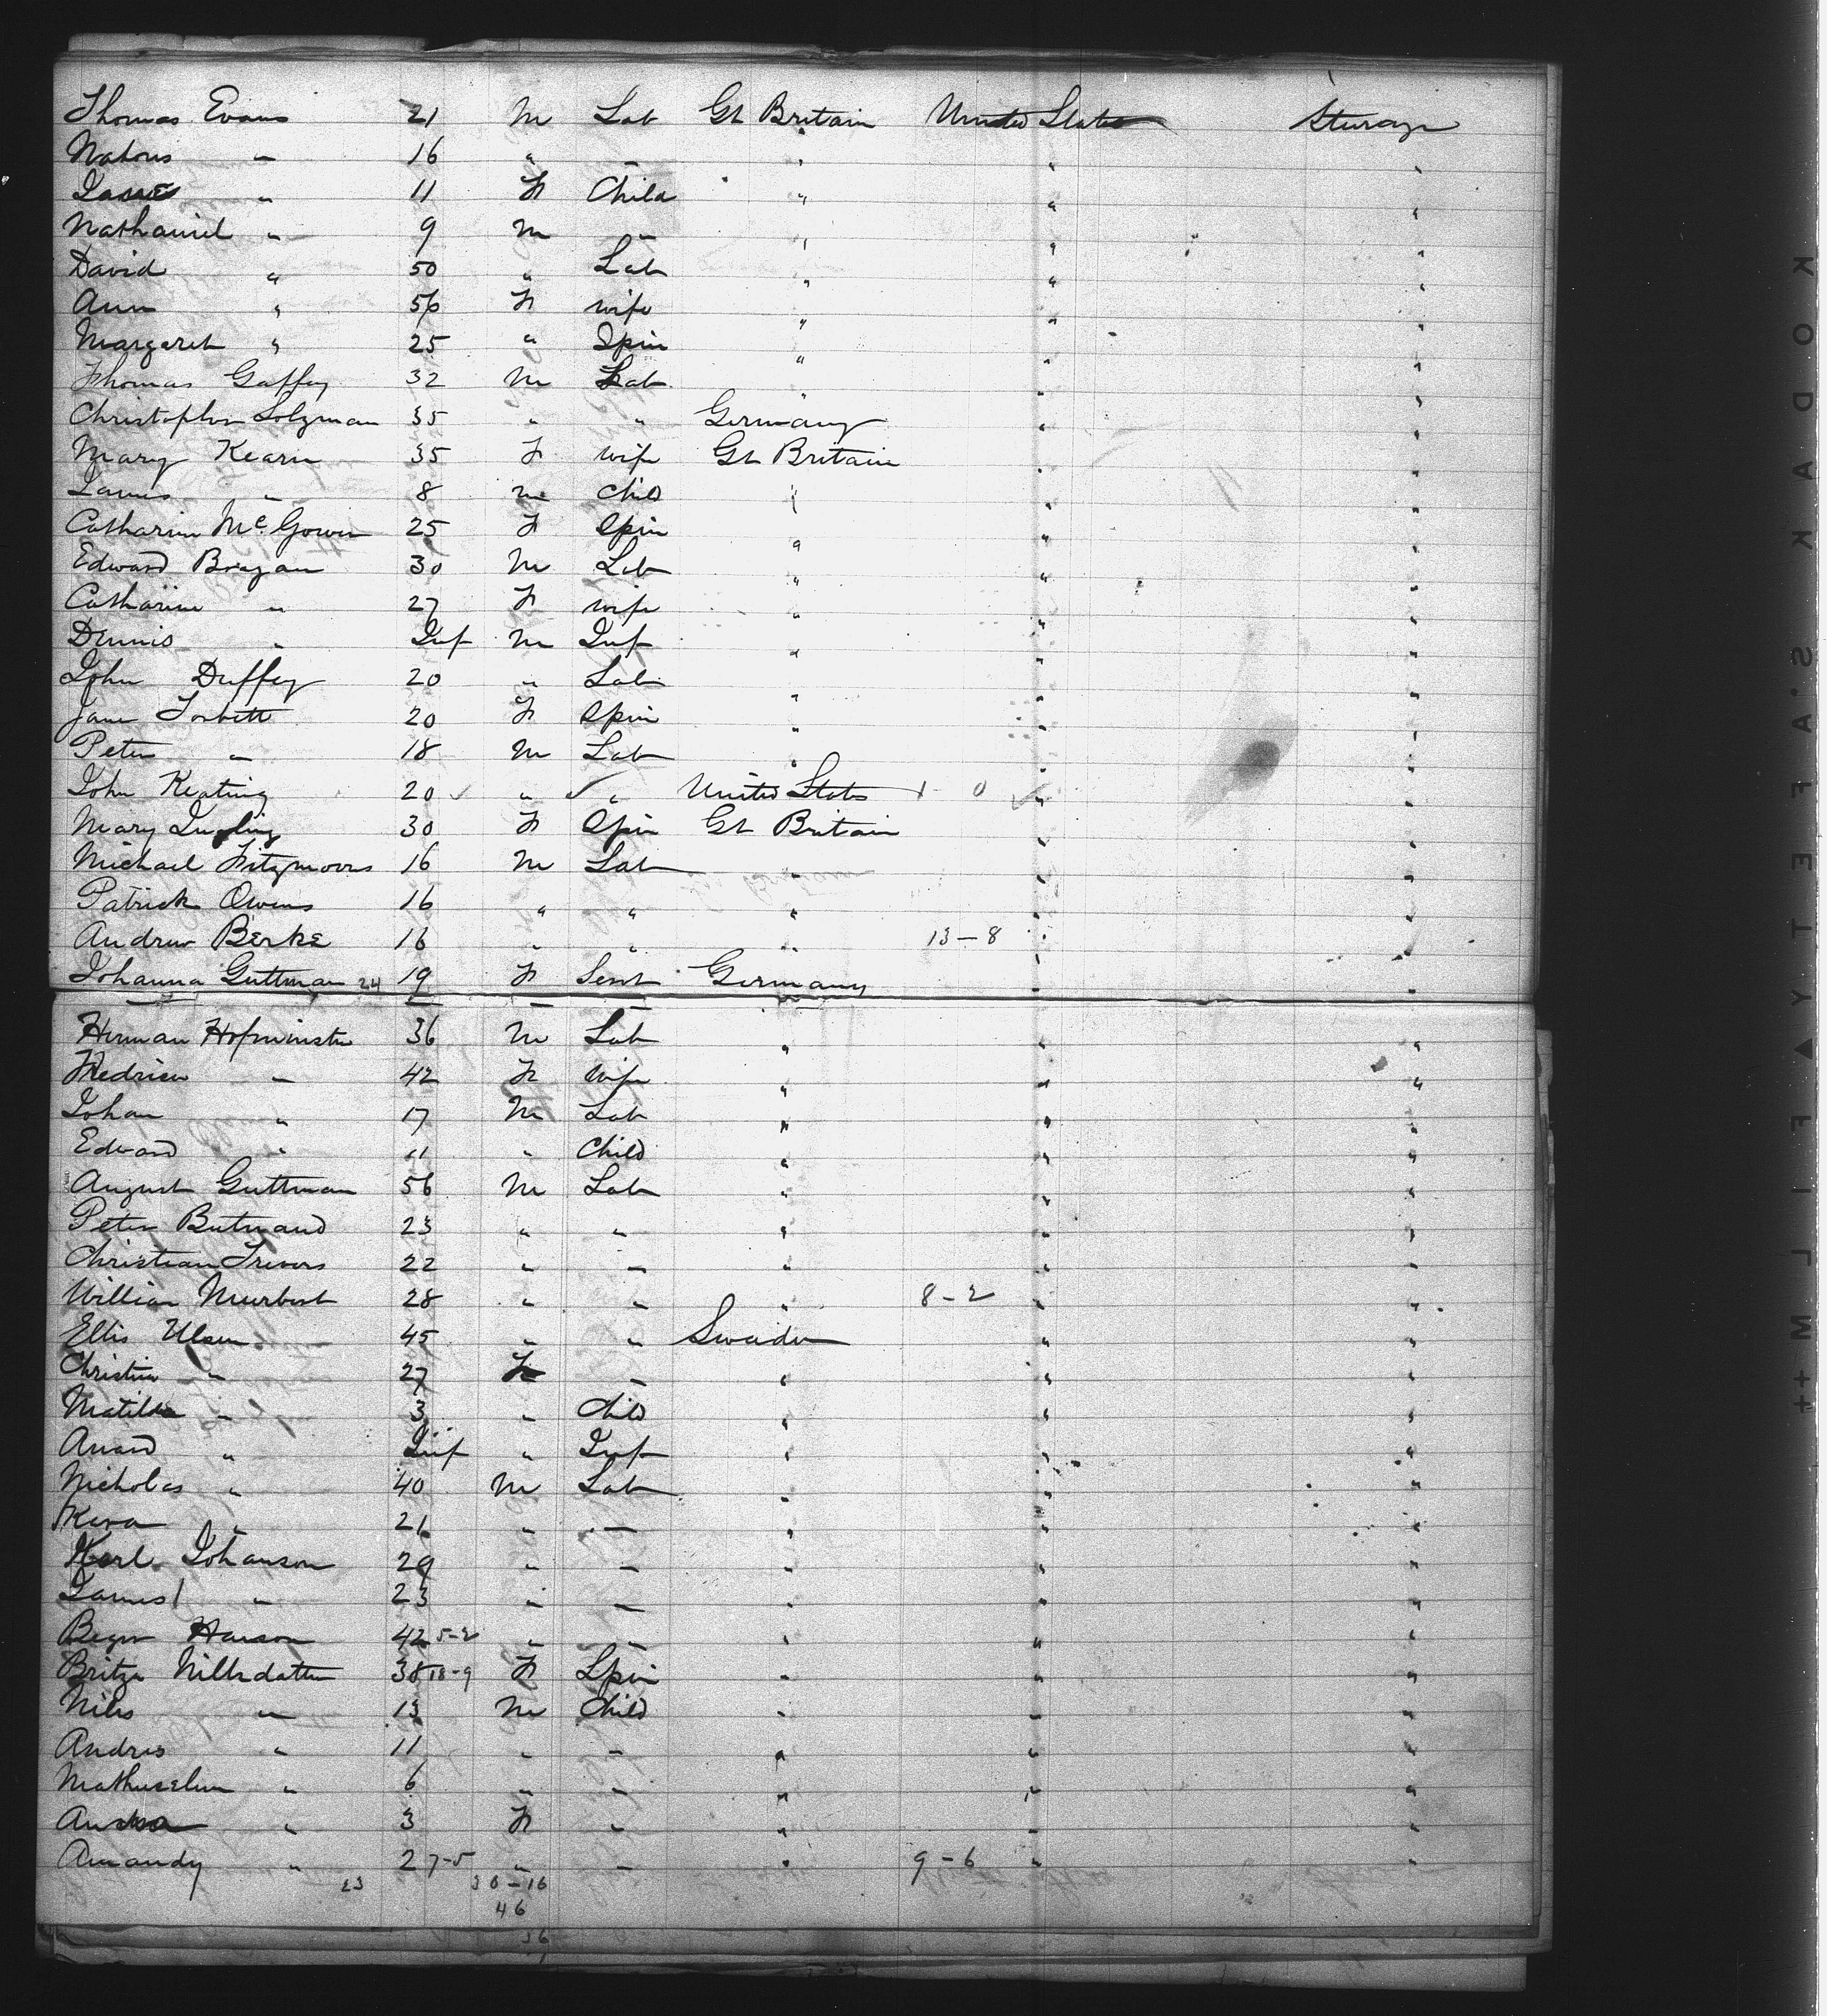 Thomas Evans 21 M Lab Gt Britain United States Steerage
" 16 " " " " "
" 11 F Child " " "
Nathaniel " 9 M " " " "
David " 50 " Lab " " "
Ann " 56 F wife " " "
Margaret " 25 " Spin " " "
Thomas Gaffey 32 M Lab " " "
Christopher Solzman 35 " " Germany " "
Mary Kearn 35 F wife Gt Britain " "
James " 8 M Child " " "
Catharine McGowen 25 F Spin " " "
Edward Brogan 30 M Lab " " "
Catharine " 27 F wife " " "
Dennis " Inf M Inf " " "
John Duffey 20 " Lab " " "
Jane Torbett 20 F Spin " " "
Peter " 18 M Lab " " "
John Keating 20 " " United States 1 - 0 " "
Mary 30 F Spin Gt Britain " "
Michael Fitzmorris 16 M Lab " " "
Patrick Owens 16 " " " " "
Andrew Berke 16 " " " 13-8 " "
Johanna Guttman 24 19 F Servt Germany " "
Herman Hofminster 36 M Lab " " "
Fredrica " 42 F Wife " " "
Johan " 17 M Lab " " "
Edward " 11 " Child " " "
August Guttman 56 M Lab " " "
Peter 23 " " " " "
Christian Trevors 22 " " " " "
William 28 " " " 8-2 " "
Ellis Ulsen 45 " " Sweden " "
Christina " 27 F " " " "
Matilda " 3 " Child " " "
" Inf " Inf " " "
Nicholas " 40 M Lab " " "
" 21 " " " " "
Karl Johanson 29 " " " " "
James " 23 " " " " "
Hanson 42 5-2 " " " " "
Britza Nillsdatter 38 18-9 F Spin " " "
Nils " 13 M Child " " "
Andres " 11 " " " " "
" 6 " " " " "
" 3 F " " " "
Amandy " 2 7-5 " " " 9-6 " "
23 30-16
46
36